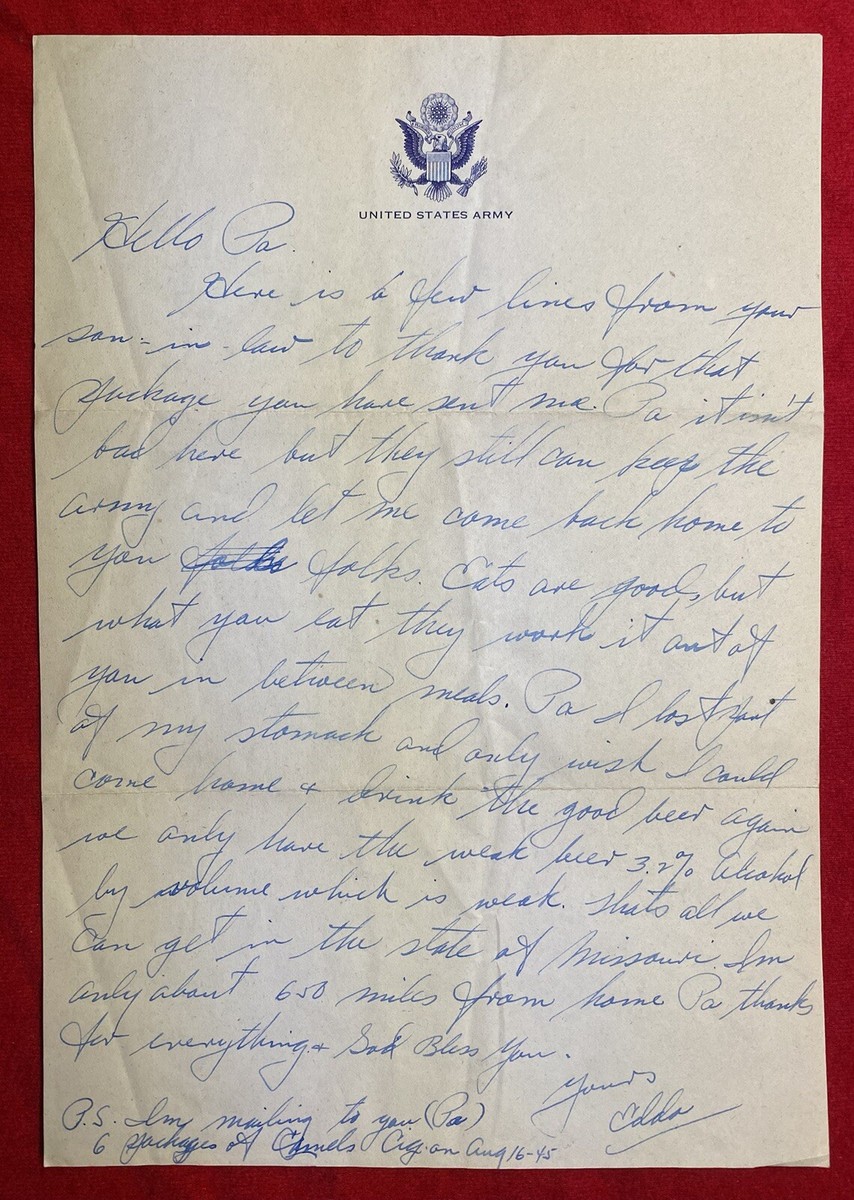 UNITED STATES ARMY
Hello Pa.
Here is a few lines from your
son-in-law to thank you for that
package you have sent me. Pa it isn't
bad here but they still can keep the
army and let me come back home to
you folks folks. Eats are good, but
what you eat they work it out of
you in between meals. Pa I lost part
of my stomach and only wish I could
come home & drink the good beer again
we only have the weak beer 3.2% alcohol
by volume which is weak. Thats all we
can get in the state of Missouri. Im
only about 650 miles from home Pa thanks
for everything & God Bless You.
Yours
P.S. Im mailing to you (Pa)
6 packages of Camels Cig. on Aug 16-45